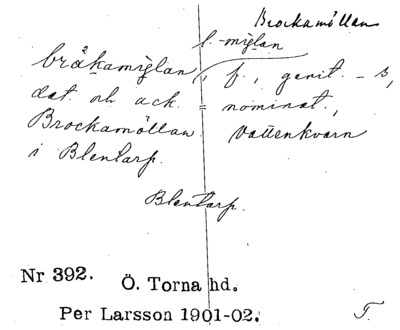 Brockamöllan
l. -miglan
bråkamiglan, f., genit. -s,
dat. och ack. = nominat.,
Brockamöllan. Vattenkvarn
i Blentarp.
Blentarp.
Nr 392.
Ö. Torna hd.
Per Larsson 1901-02.
F.